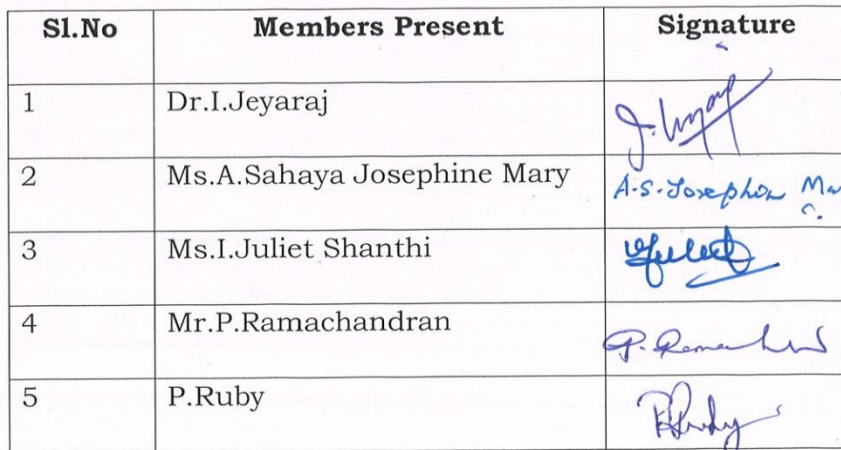 Sl.No Members Present Signature
1 Dr.I.Jeyaraj
2 Ms.A.Sahaya Josephine Mary A.S.Josephin
3 Ms.I.Juliet Shanthi
4 Mr.P.Ramachandran
5 P.Ruby P.Ruby